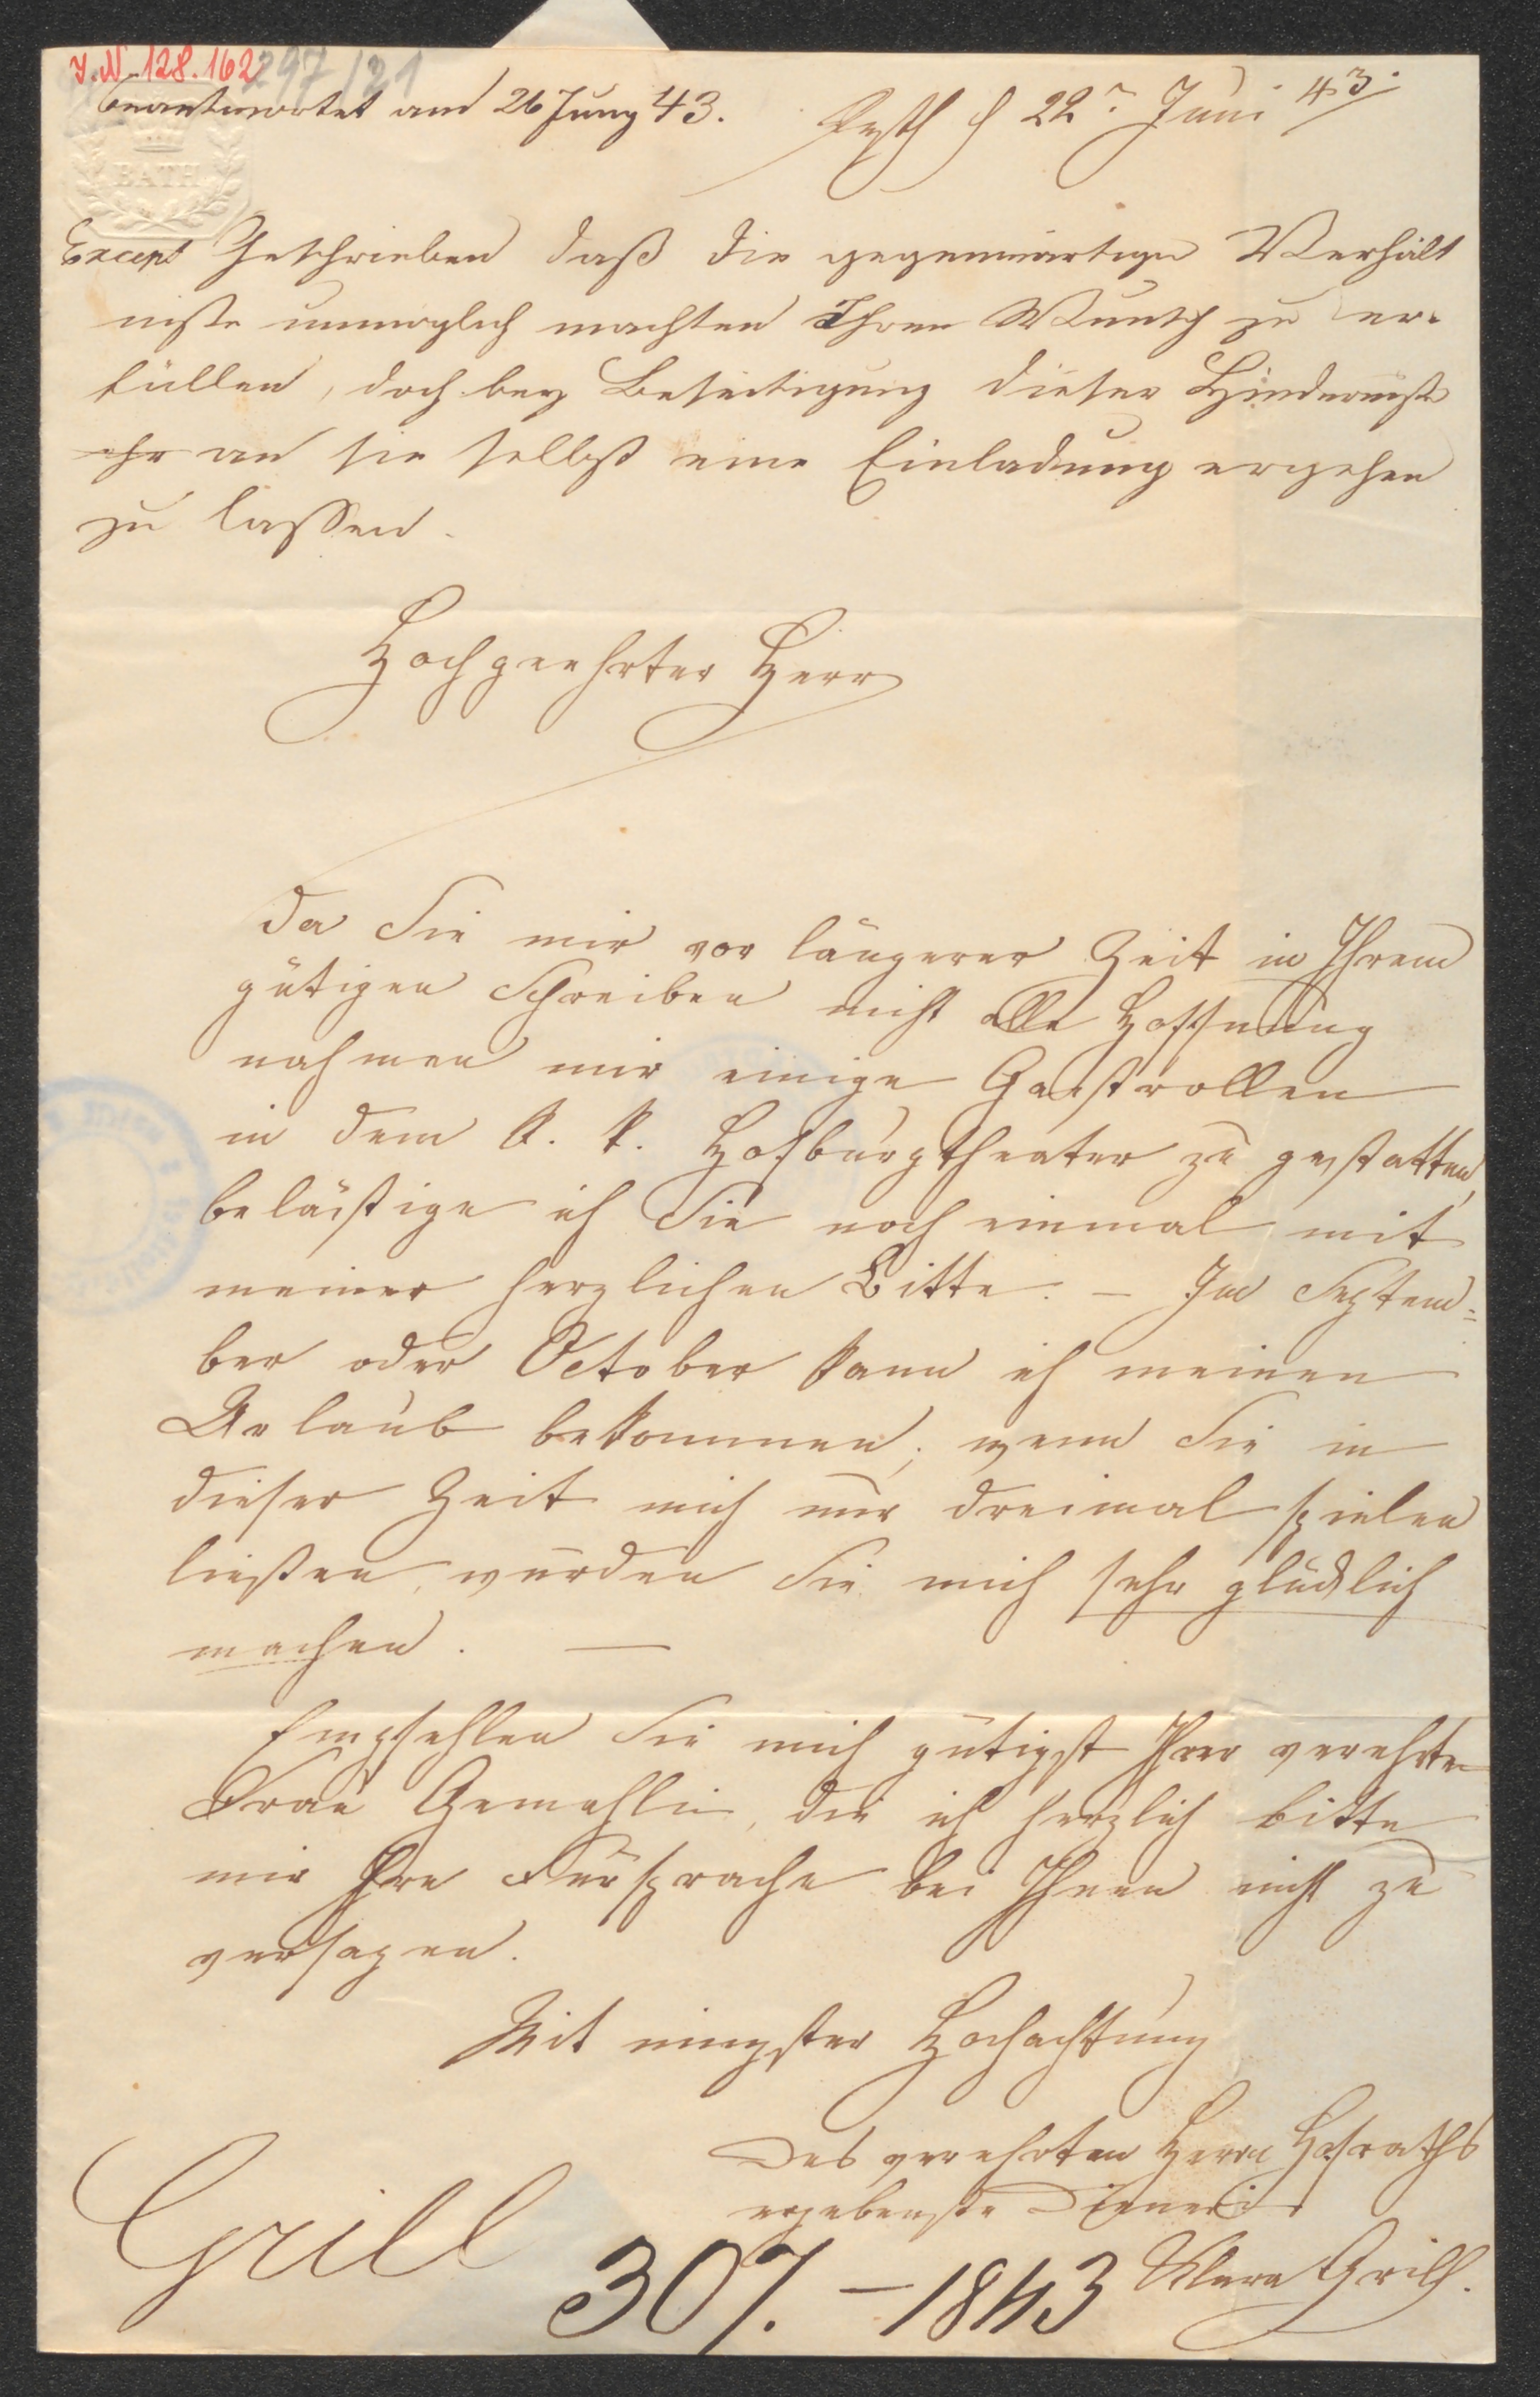 J.N. 128.162
297/21
beantwortet am 26 Juny 43.
Pesth d 22n Juni 43.
BATH
Except Geschrieben daß die gegenwärtigen Verhält
niße unmöglich machten Ihren Wunsch zu er-
füllen, doch bey Beseitigung dieser Hinderniße
an sie selbst eine Einladung ergehen
zu lassen.
Hochgeehrter Herr
Da Sie mir vor längerer Zeit in Ihrem
gütigen Schreiben nicht alle Hoffnung
nahmen mir einige Gastrollen
in dem k. k. Hofburgtheater zu gestatten,
belästige ich Sie noch einmal mit
meiner herzlichen Bitte. – Im Septem=
ber oder October kann ich meinen
Urlaub bekommen, wenn Sie in
dieser Zeit mich nur dreimal spielen
ließen, würden Sie mich sehr glücklich
machen. —
Empfehlen Sie mich gütigst Ihrer verehrten
Frau Gemahlin, die ich herzlich bitte
mir Ihre Fürsprache bei Ihnen nicht zu
versagen.
Mit innigster Hochachtung
Des verehrten Herrn Hofraths
ergebenste Dienerin
Clara Grill.
Grill
307. – 1843